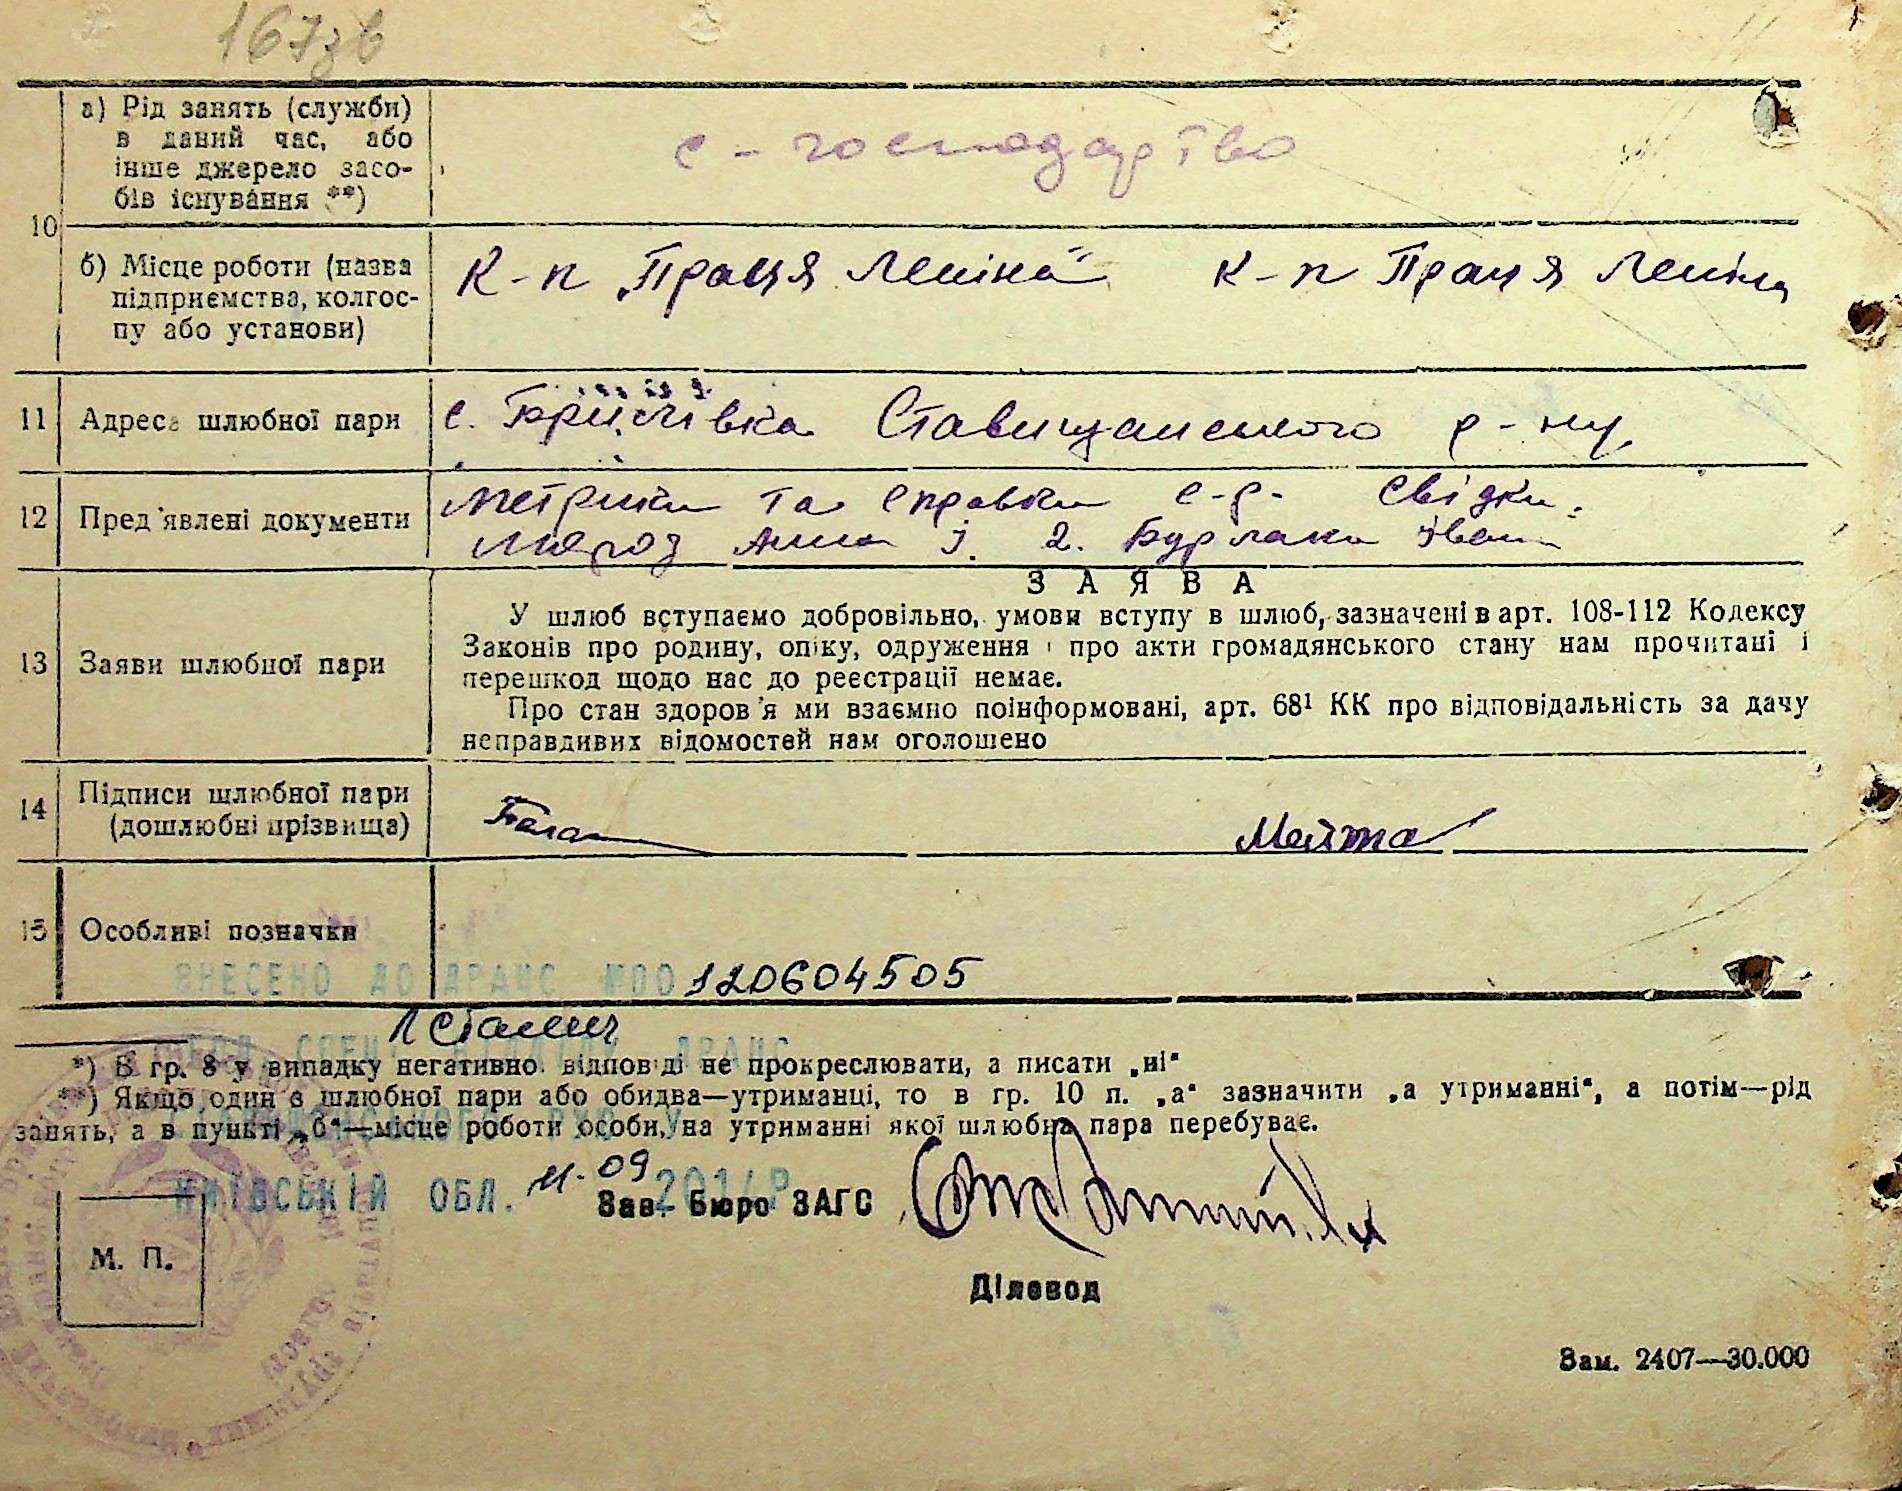 167зв
а) Рід занять (служби)
в даний час, або
інше джерело засо-
бів існування **)
с - господарство
10
б) Місце роботи (назва
підприємства, колгос-
пу або установи)
К-п „Праця Леніна" К-п Праця Леніна
11 Адреса шлюбної пари
с. Ставищанського р-ну
12 Пред'явлені документи
Метрики та справки с-р- Свідки:
Анна 2. Бурлака Іван
ЗАЯВА
13 Заяви шлюбної пари
У шлюб вступаємо добровільно, умови вступу в шлюб, зазначені в арт. 108-112 Кодексу
Законів про родину, опіку, одруження і про акти громадянського стану нам прочитані і
перешкод щодо нас до реєстрації немає.
Про стан здоров'я ми взаємно поінформовані, арт. 68¹ КК про відповідальність за дачу
неправдивих відомостей нам оголошено
14 Підписи шлюбної пари
(дошлюбні прізвища)
15 Особливі позначки
ВНЕСЕНО ДО ДРАЦС №00 120604505
*) В гр. 8 у випадку негативно відповіді не прокреслювати, а писати „ні"
**) Якщо один з шлюбної пари або обидва—утриманці, то в гр. 10 п. „а" зазначити „а утриманні", а потім—рід
занять, а в пункті „б"—місце роботи особи, на утриманні якої шлюбна пара перебуває.
КИЇВСЬКІЙ ОБЛ. 11.09 201 р
Зав. Бюро ЗАГС
М. П.
Діловод
Зам. 2407—30.000